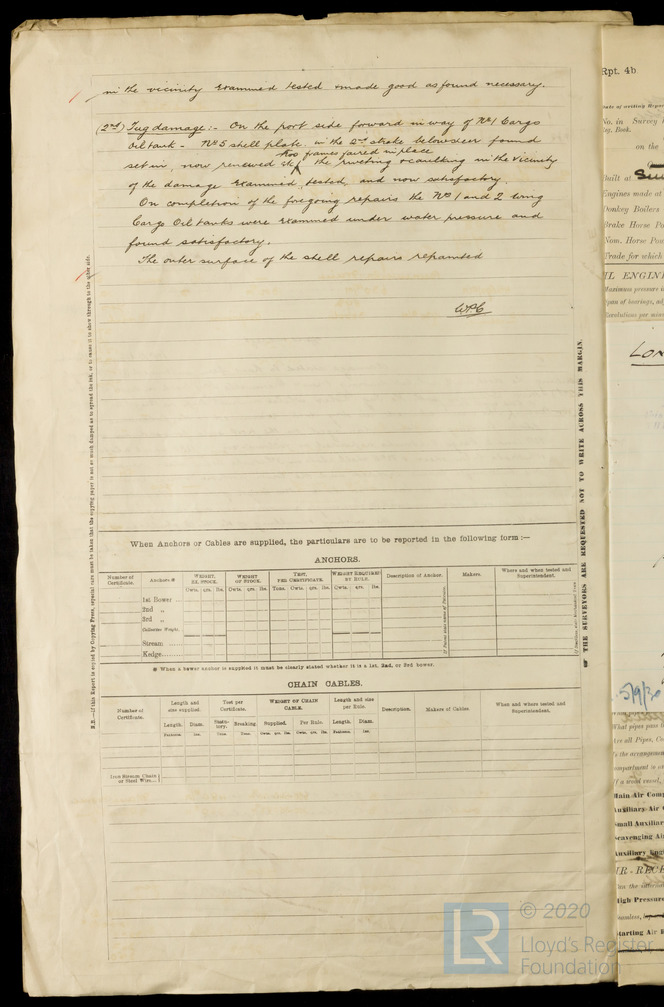 in the vicinity examined tested & made good as found necessary.
(2nd) Tug damage:- On the port side forward in way of No 1 Cargo
oil tank - No 5 shell plate in the 2nd strake below sheer found
two frames faired in place
set in, now renewed & the riveting & caulking in the vicinity
of the damage examined, tested, and now satisfactory.
On completion of the foregoing repairs the Nos 1 and 2 wing
Cargo Oil tanks were examined under water pressure and
found satisfactory.
The outer surface of the shell repairs repainted
WPC
N.B.—If this Report is copied by Copying Press, especial care must be taken that the copying paper is not so much damped as to spread the ink, or to cause it to show through to the other side.
THE SURVEYORS ARE REQUESTED NOT TO WRITE ACROSS THIS MARGIN.
When Anchors or Cables are supplied, the particulars are to be reported in the following form :—
ANCHORS.
Number of Certificate. Anchors.* WEIGHT, EX. STOCK. WEIGHT OF STOCK. TEST, PER CERTIFICATE. WEIGHT REQUIRED BY RULE. Description of Anchor. Makers. Where and when tested and Superintendent.
Cwts. qrs. lbs. Cwts. qrs. lbs. Tons. Cwts. qrs. lbs. Cwts. qrs. lbs.
1st Bower ...
2nd „
3rd „
Collective Weight.
Stream ......
Kedge........
* When a bower anchor is supplied it must be clearly stated whether it is a 1st, 2nd, or 3rd bower.
CHAIN CABLES.
Number of Certificate. Length and size supplied. Test per Certificate. WEIGHT OF CHAIN CABLE. Length and size per Rule. Description. Makers of Cables Where and when tested and Superintendent.
Length. Diam. Statutory. Breaking Supplied. Per Rule. Length. Diam.
Fathoms. Ins. Tons. Tons. Cwts. qrs. lbs. Cwts. qrs. lbs. Fathoms. Ins.
Iron Stream Chain or Steel Wire...
Rpt. 4b
No. in Survey
Reg. Book.
on the
Built at
Engines made at
Donkey Boilers
Brake Horse Po
Nom. Horse Pow
Trade for which
IL ENGIN
Maximum pressure i
Span of bearings, adj
Revolutions per minu
LON
5/9/30
What pipes pass t
Are all Pipes, Co
Is the arrangement
If a wood vessel,
Main Air Comp
Auxiliary Air
Small Auxiliar
Scavenging Ai
Auxiliary Engi
IR-RECE
High Pressure
Starting Air R
LR
© 2020
Lloyd's Register
Foundation